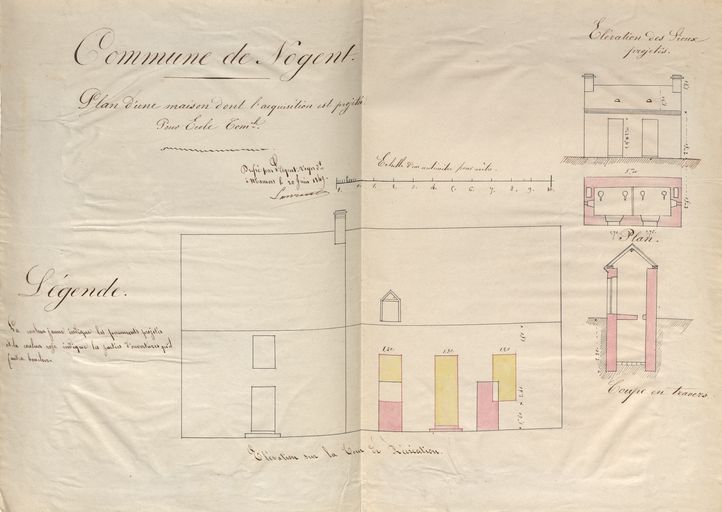 Commune de Nogent.
Plan d'une maison dont l'acquisition est projetée
Pour École Comle.
Dressé par l'Agent Voyer
à Mamers le 20 Juin
Echelle d'un centimètre pour mètre.
1. 0. 1. 2. 3. 4. 5. 6. 7. 8. 9. 10.
Élévation des Lieux
projetés.
Plan.
Légende.
La couleur jaune indique les percements projetés
et la couleur rose indique les parties d'ouvertures qu'il
faudra boucher.
1.20 1.30 1.20
Coupe en travers
Elévation sur la Cour de Récréation.